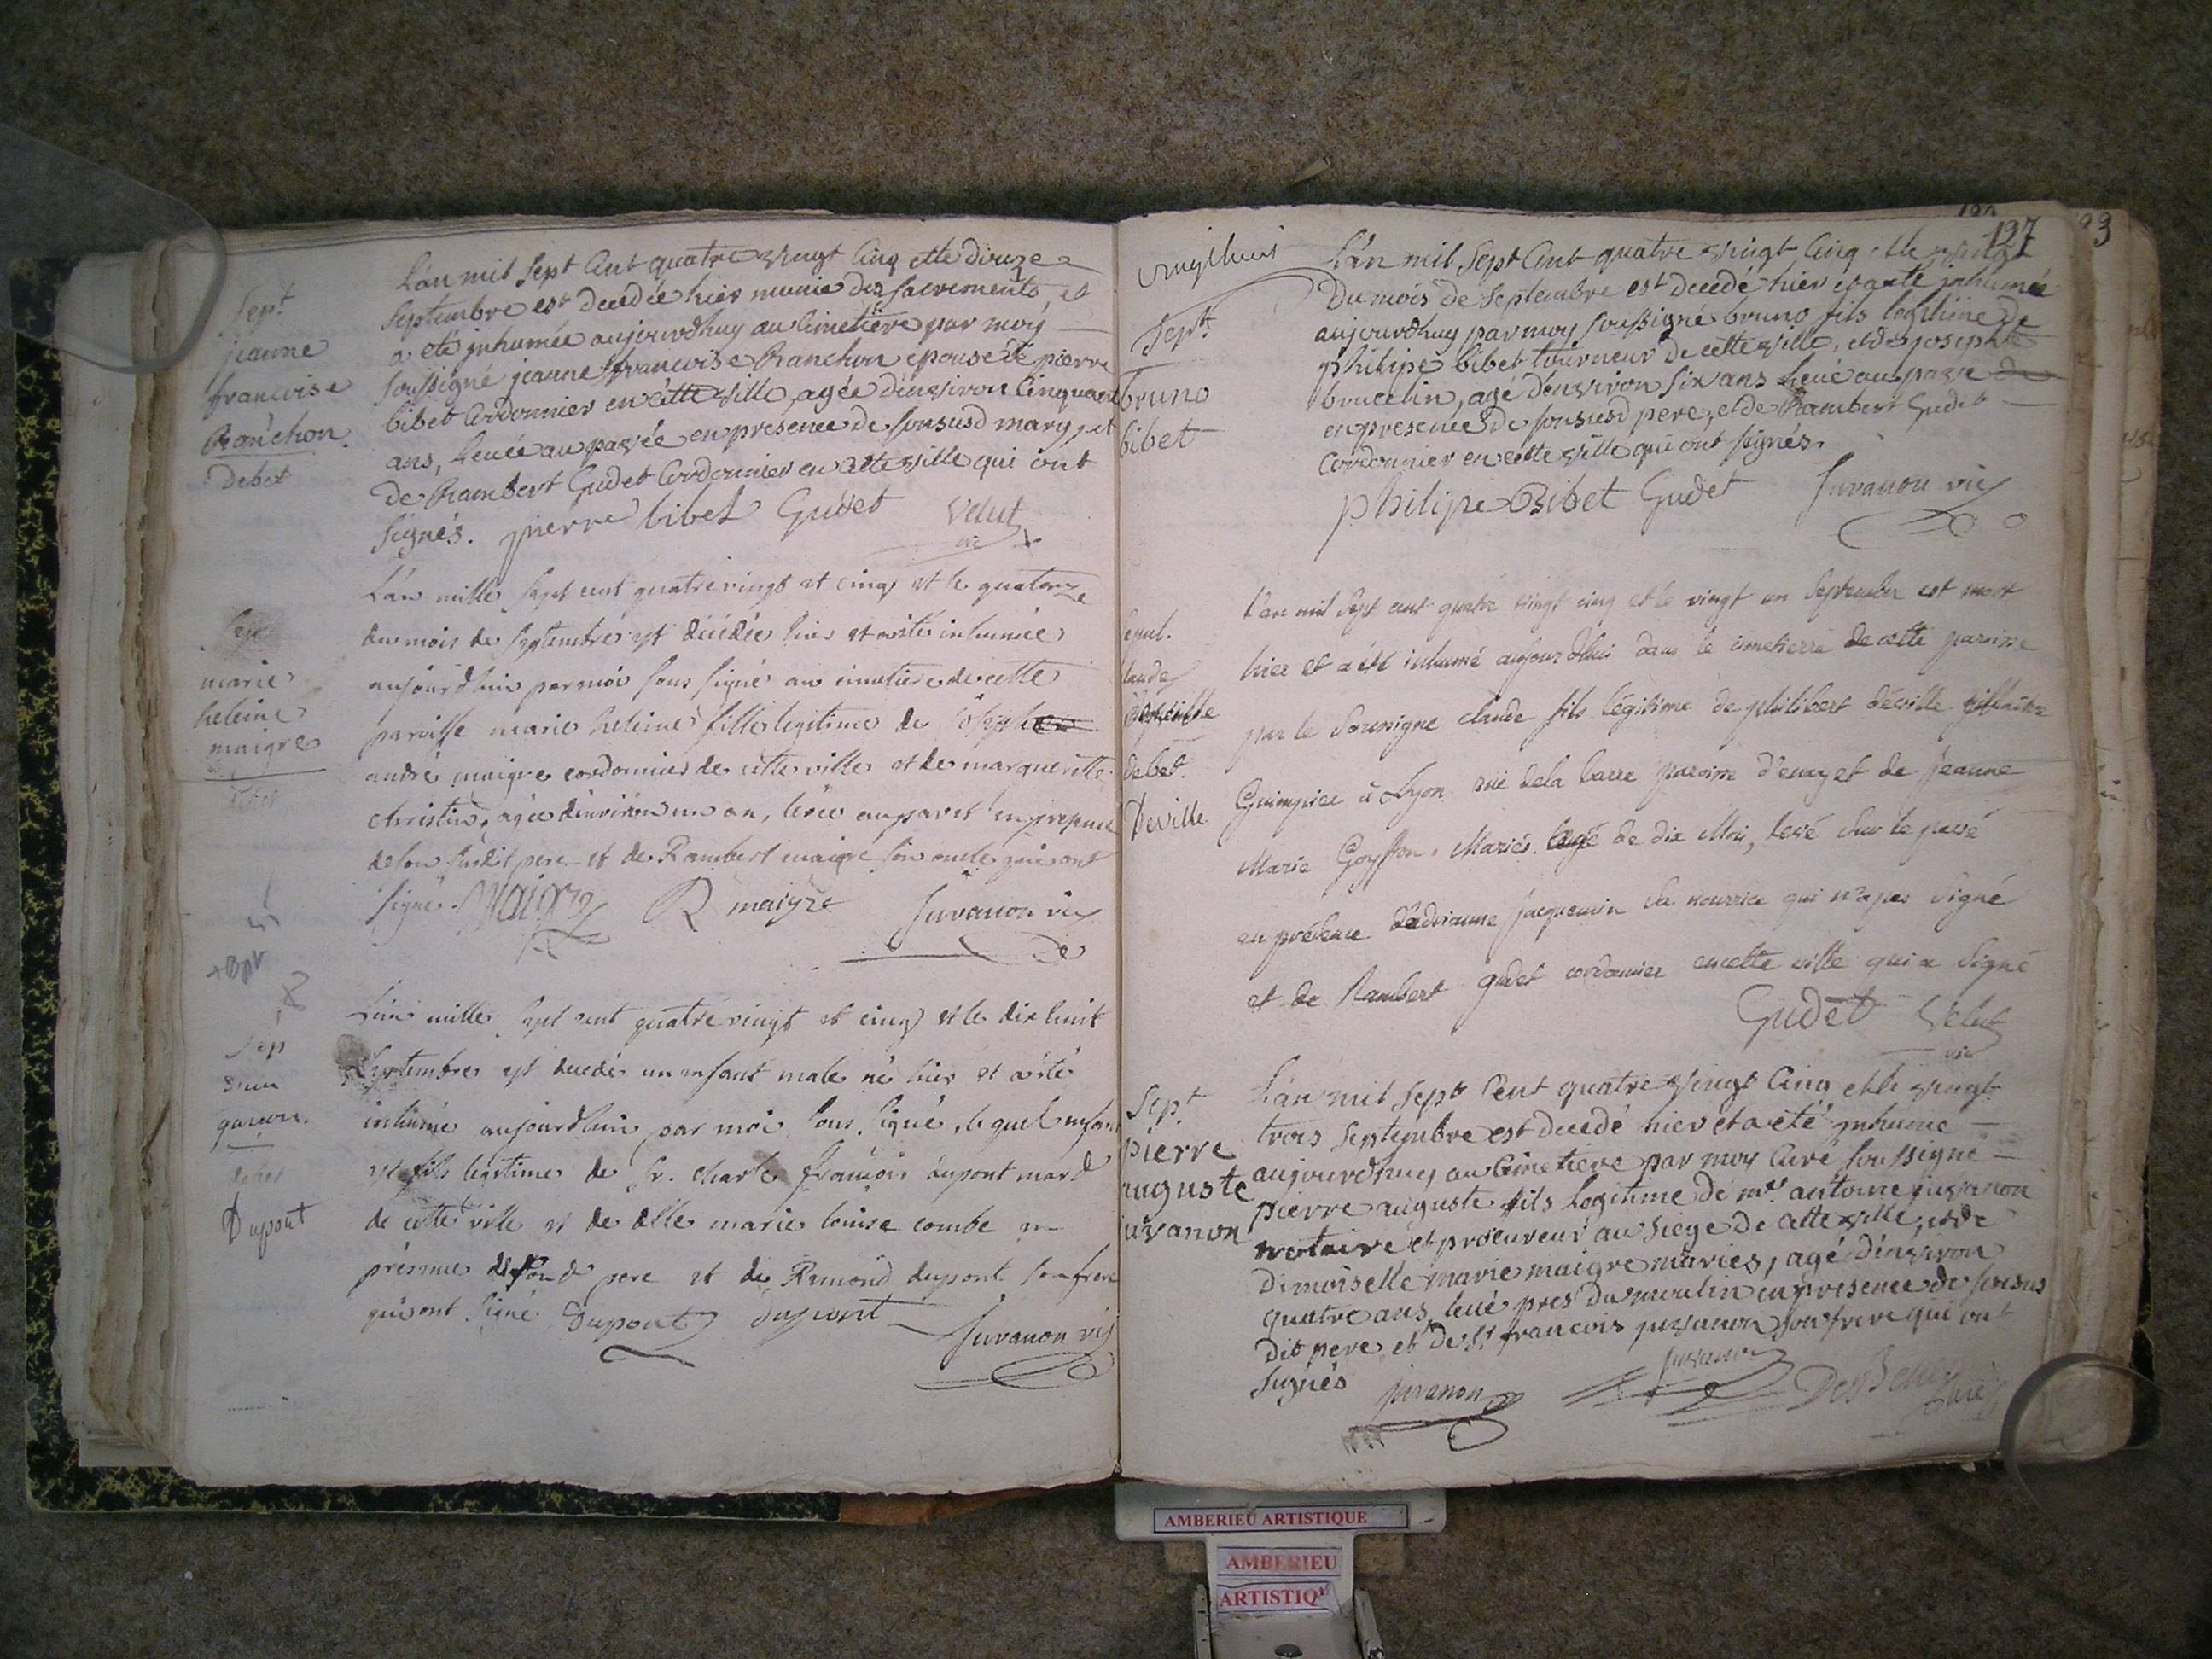 Sept.
jeanne
francoise
Ranchon.
Debet
L'an mil Sept Cent quatre vingt Cinq et le douze
Septembre est decedée hier munie des sacrements, et
a eté inhumée aujourdhuy au Cimetiere par moy
soussigné jeanne francoise Ranchon epouse de pierre
bibet Cordonnier en cette ville, agée d'environ Cinquante
ans, levée au pavée en presence de sonsusd mary, et
de Rambert Gudet Cordonnier en cette ville qui ont
signés. pierre bibet Gudet Velut
vic
marie
heleine
maigre
L'an mille sept cent quatrevingt et cinq et le quatorze
du mois de septembre est décédée hier et a été inhumée
aujourd'huis par moi sous signé au cimetiere de cette
paroisse marie heleine fille legitime de
andré maigre cordonnier de cette ville et de marguerite
christin, agée d'environ un an, levée au pavet en presence
de son susdit pere et de Rambert maigre son oncle qui ont
signé. Maigre R maigre Juvanon vic
Sep
d'un
garcon.
debet
Dupont
L'an mille sept cent quatre vingt et cinq et le dix huit
Septembre est decedé un enfant male né hier et a été
inhumé aujourdhuis par moi sous signé, le quel enfant
est fils legitime de Sr. charle françois dupont mard
de cette ville et de delle marie louise combe en
présence de son d pere et de Rimond dupont son frere
qui ont signé Dupont dupont
Juvanon vic
137
93
vingthuis
Sept.
bruno
bibet
L'an mil Sept Cent quatre vingt Cinq et le vingt
Du mois de Septembre est decedé hier et a eté inhumé
aujourdhuy par moy soussigné bruno fils legitime de
philipe bibet tourneur de cette ville, et de josephte
brucelin, agé d'environ six ans levé au pave de
en presence de sonsusd pere, et de Rambert Gudet
Cordonnier en cette ville qui ont signés.
philipe Bibet Gudet Juvanon vic
debet.
Deville
L'an mil sept cent quatre vingt cinq et le vingt un Septembre est mort
hier et a été inhumé aujourd'hui dans le cimetierre de cette paroisse
par le soussigné claude fils légitime de philibert déville
Guimpier à Lyon rue dela barre paroisse d'enay et de jeanne
Marie Goyffon. Mariés. agé de dix Mois, levé sur le pavé
en présence d'adrianne jacquemin sa nourrice qui n'a pas signé
et de Rambert gudet cordonnier en cette ville qui a signé
Gudet Velut
vic
Sept.
pierre
auguste
juvanon
L'an mil Sept Cent quatre vingt Cinq et le vingt
trois Septembre est decedé hier et a eté inhumé
aujourdhuy au Cimetiere par moy Curé soussigné
pierre auguste fils legitime de me. antoine juvanon
notaire et procureur au siege de cette ville, et de
Dimoiselle marie maigre mariés, agé d'environ
quatre ans, levé pres du moulin en presence de sonsus
dit pere et de sr francois juvanon son frere qui ont
signés juvanon juvanon
curé
AMBERIEU ARTISTIQUE
AMBERIEU
ARTISTIQ